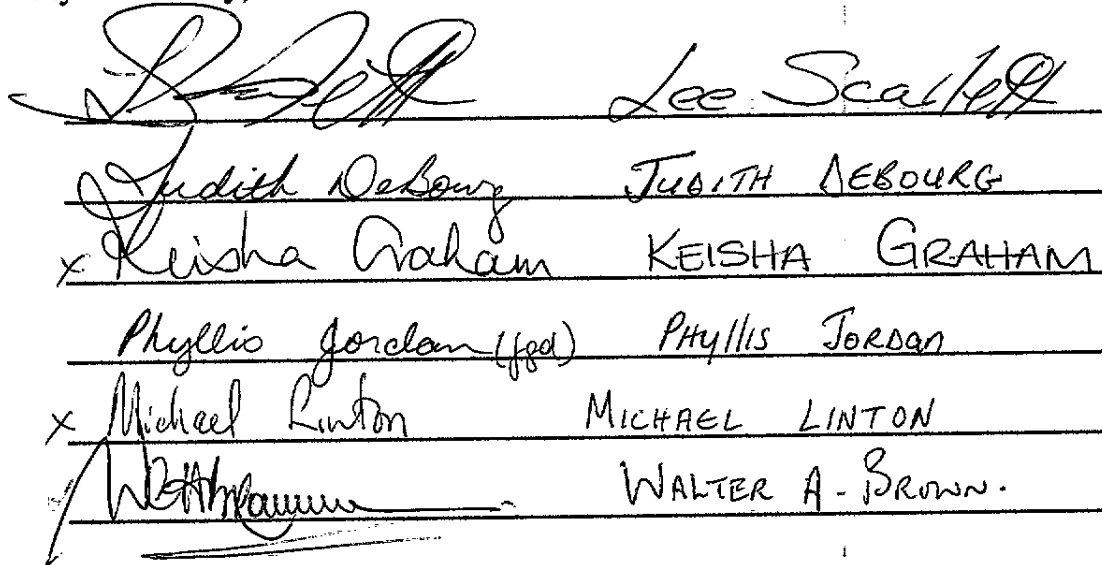 Lee Scarlett
Judith DeBourg JUDITH DEBOURG
x Keisha Graham KEISHA GRAHAM
Phyllis Jordan PHyllis JORDAN
x Michael Linton MICHAEL LINTON
WALTER A. BROWN.